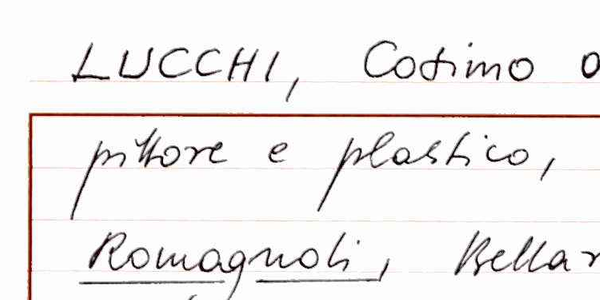 LUCCHI, Cosimo
pittore e plastico,
Romagnoli, Bellar